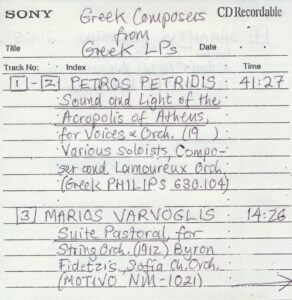 SONY
CD Recordable
Greek Composers
from
Title Greek LPs Date
Track No: Index: Time
1 - 2 PETROS PETRIDIS 41:27
Sound and Light of the
Acropolis of Athens,
for Voices & Orch. (19 )
Various soloists, Compo-
ser and Lamoureux Orch.
(Greek PHILIPS 630.104)
3 MARIOS VARVOGLIS 14:26
Suite Pastoral, for
String Orch. (1912) Byron
Fidetzis, Sofia Ch. Orch.
(MOTIVO NM-1021)